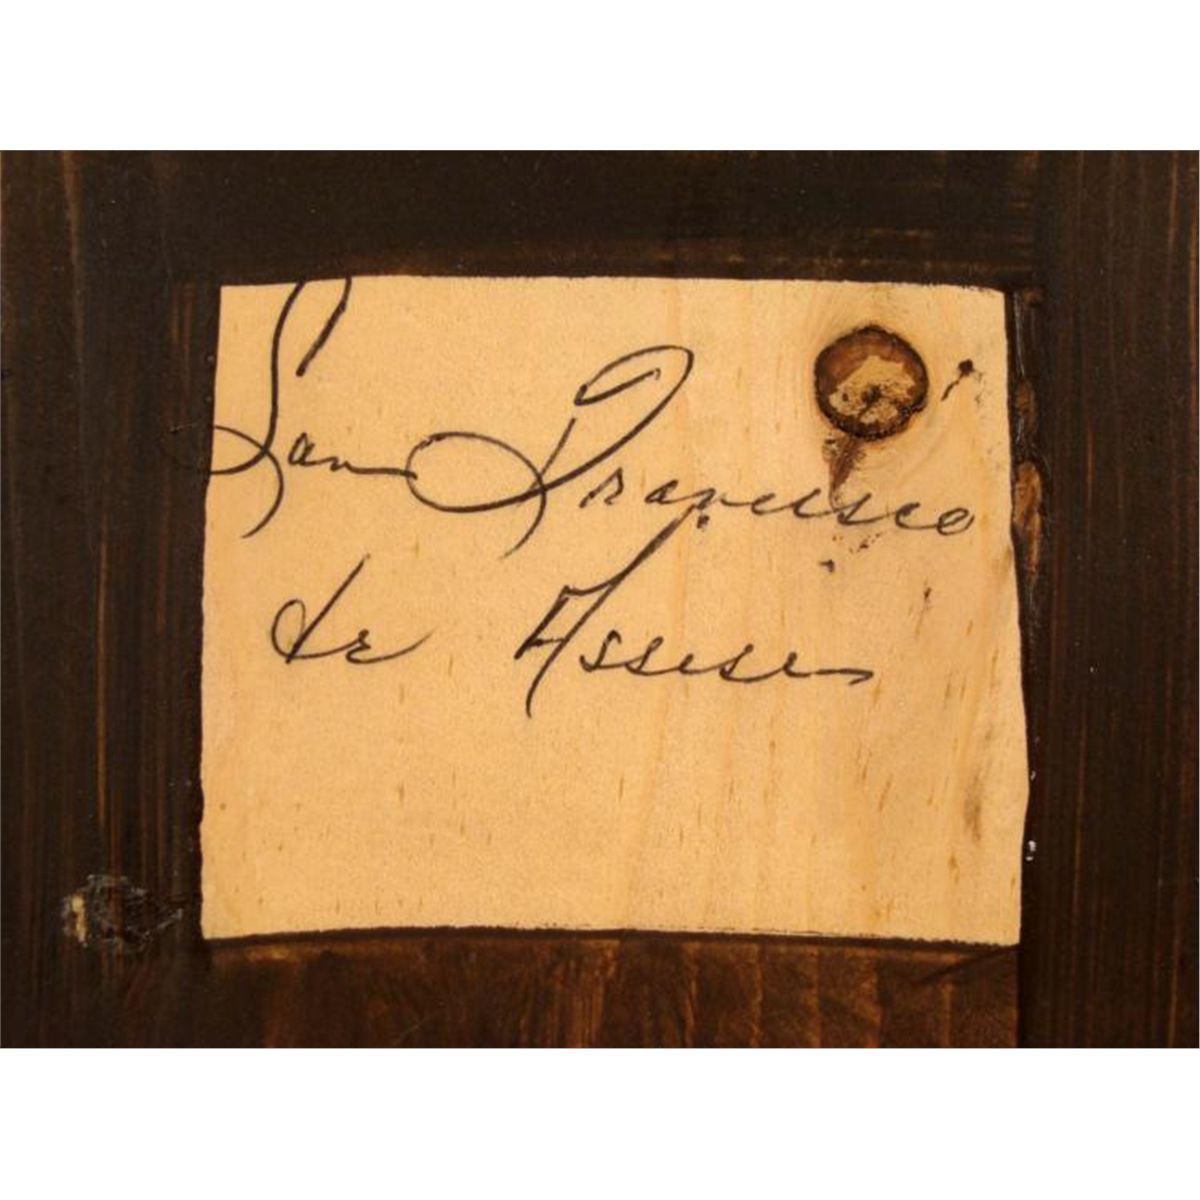 San Francisco
de Assesi